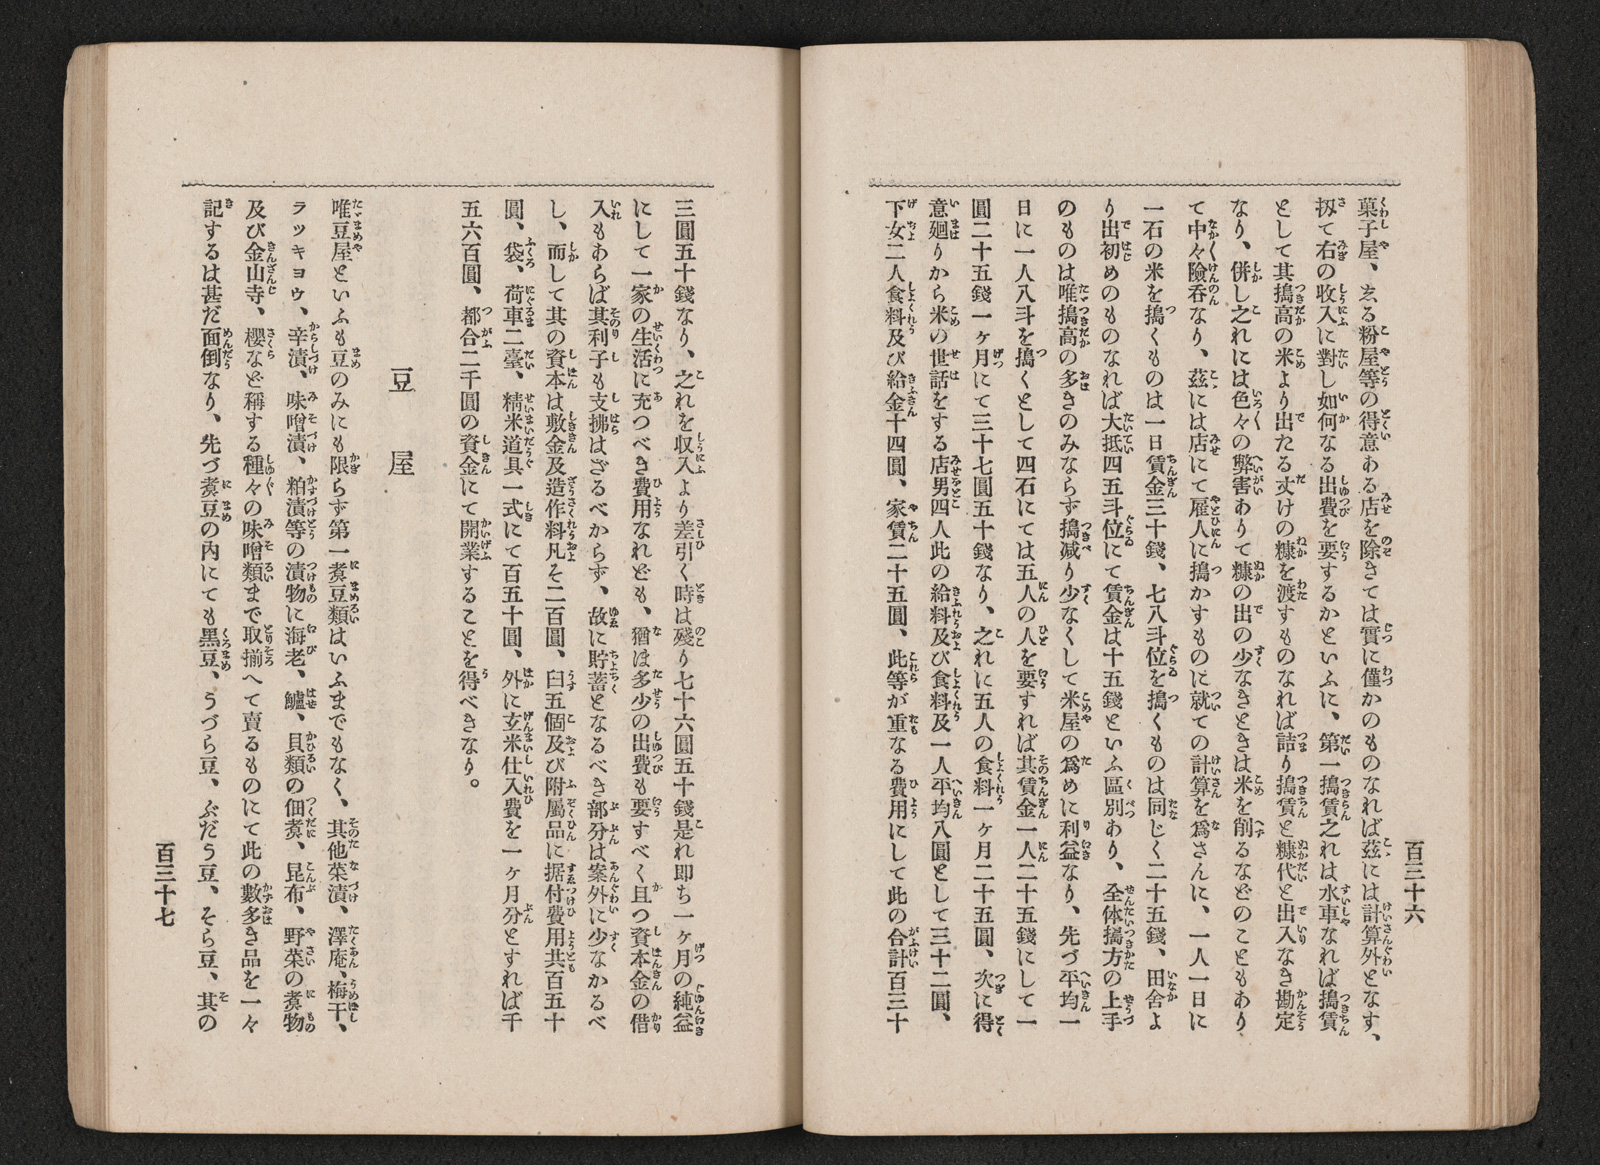 百三十六
菓子屋、ゑる粉屋等の得意ある店を除きては實に僅かのものなれば茲には計算外となす、
扨て右の收入に對し如何なる出費を要するかといふに、第一搗賃之れは水車なれば搗賃
として其搗高の米より出たる丈けの糠を渡すものなれば詰り搗賃と糠代と出入なき勘定
なり、併し之れには色々の弊害ありて糠の出の少なきときは米を削るなどのこともあり
て中々險呑なり、茲には店にて雇人に搗かすものに就ての計算を爲さんに、一人一日に
一石の米を搗くものは一日賃金三十錢、七八斗位を搗くものは同じく二十五錢、田舍よ
り出初めのものなれば大抵四五斗位にて賃金は十五錢といふ區別あり、全体搗方の上手
のものは唯搗高の多きのみならず搗減り少なくして米屋の爲めに利益なり、先づ平均一
日に一人八斗を搗くとして四石にては五人の人を要すれば其賃金一人二十五錢にして一
圓二十五錢一ヶ月にて三十七圓五十錢なり、之れに五人の食料一ヶ月二十五圓、次に得
意廻りから米の世話をする店男四人此の給料及び食料及一人平均八圓として三十二圓、
下女二人食料及び給金十四圓、家賃二十五圓、此等が重なる費用にして此の合計百三十
三圓五十錢なり、之れを収入より差引く時は殘り七十六圓五十錢是れ即ち一ヶ月の純益
にして一家の生活に充つべき費用なれども、猶ほ多少の出費も要すべく且つ資本金の借
入もあらば其利子も支拂はざるべからず、故に貯蓄となるべき部分は案外に少なかるべ
し、而して其の資本は敷金及造作料凡そ二百圓、臼五個及び附屬品に据付費用共百五十
圓、袋、荷車二臺、精米道具一式にて百五十圓、外に玄米仕入費を一ヶ月分とすれば千
五六百圓、都合二千圓の資金にて開業することを得べきなり。
豆屋
唯豆屋といふも豆のみにも限らず第一煮豆類はいふまでもなく、其他菜漬、澤庵、梅干、
ラッキョウ、辛漬、味噌漬、粕漬等の漬物に海老、鱸、貝類の佃煮、昆布、野菜の煮物
及び金山寺、櫻など稱する種々の味噌類まで取揃へて賣るものにて此の數多き品を一々
記するは甚だ面倒なり、先づ煮豆の内にても黑豆、うづら豆、ぶだう豆、そら豆、其の
百三十七